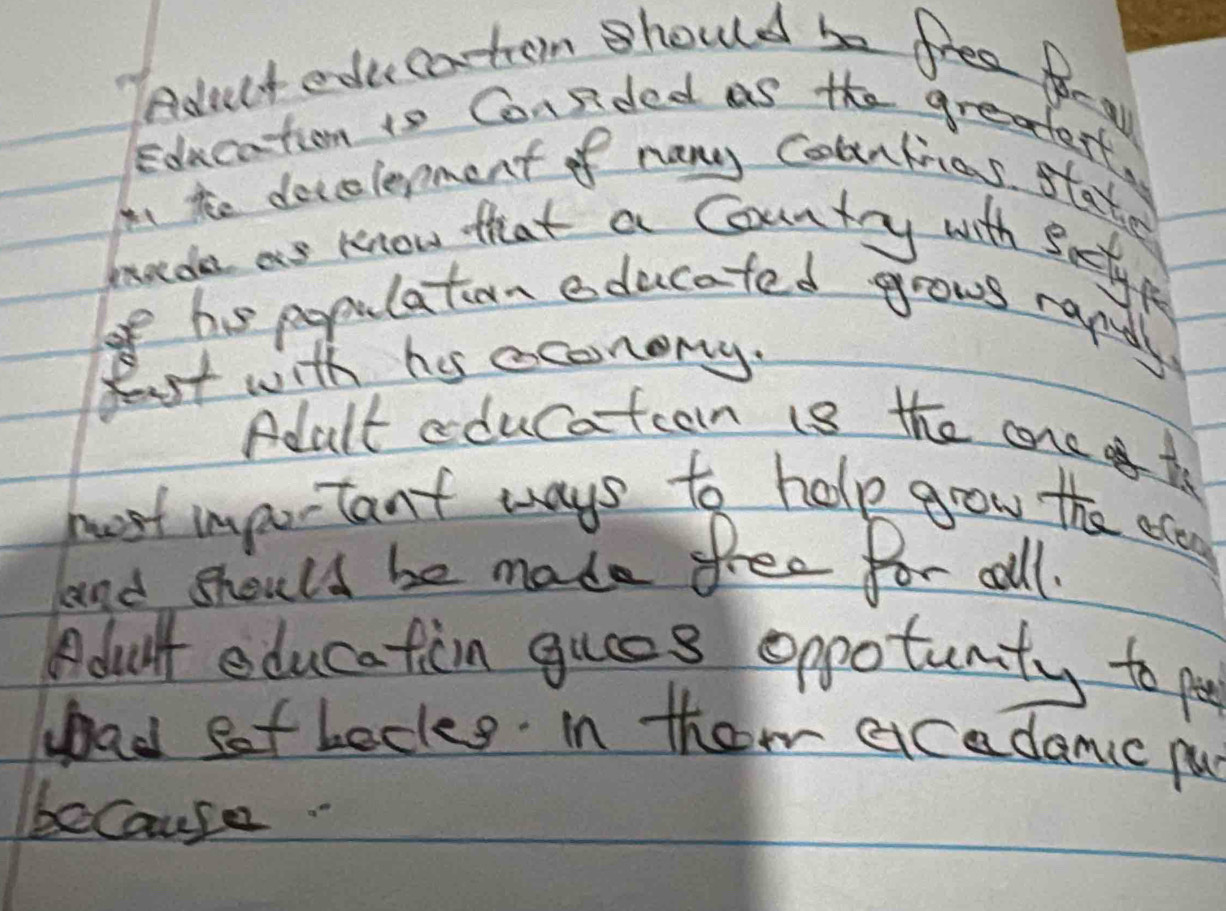 Adult education should be free for all
Education is Consided as the greatest
in the development of many Countries. Static
made us know that a Country with sixty
of his population educated grows rapidly
fast with his economy.
Adult education is the one of the
most important ways to help grow the
and should be made free for all.
Adult education gives oppotunity to
had set backs. in their acadamic
because.